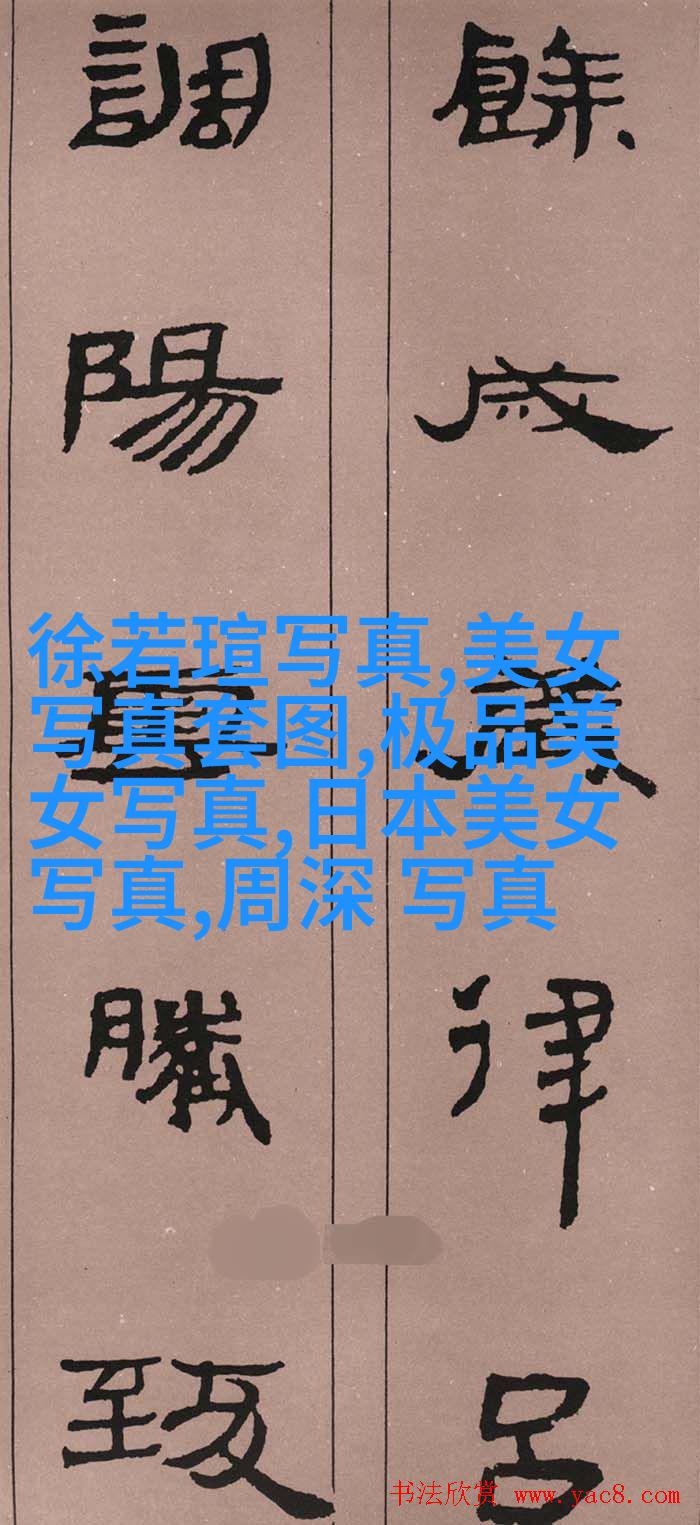 餘成歲律呂
調陽雲騰致
徐若瑄写真,美女
写真套图,极品美
女写真,日本美女
写真,周深 写真
书法欣赏 www.yac8.com